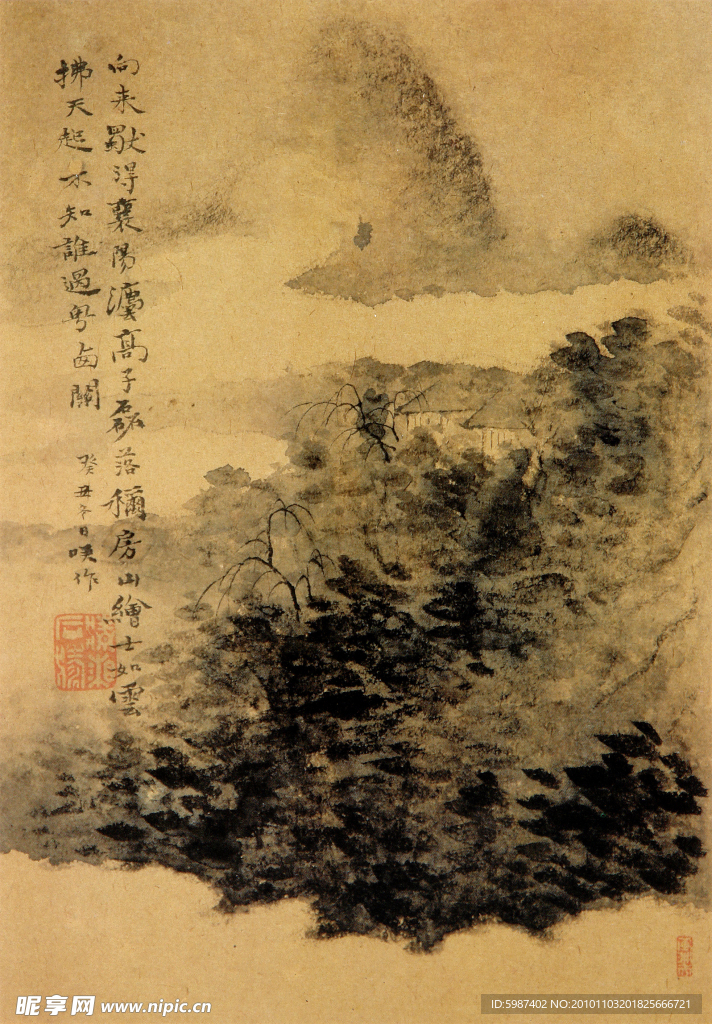 向来得襄陽高子磊落穪房山繪士如雲
拂天起不知誰過粤關
癸丑冬日作
昵享网 www.nipic.cn
ID:5987402 NO:20101103201825666721